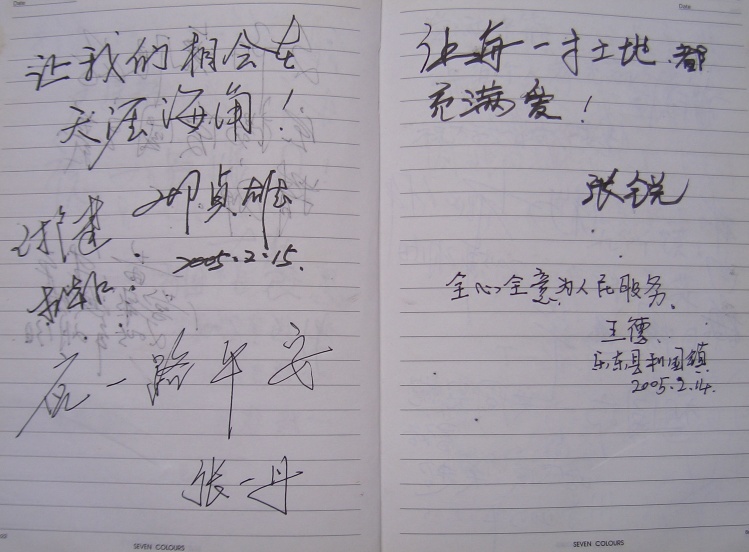 Date
让我们相会在
天涯海角！
邓贞雄
2005.2.15.
一路平安
张一丹
SEVEN COLOURS
Date
让每一寸土地都
充满爱！
张锐
全心全意为人民服务。
王儒
乐东县利国镇
2005.2.14.
SEVEN COLOURS